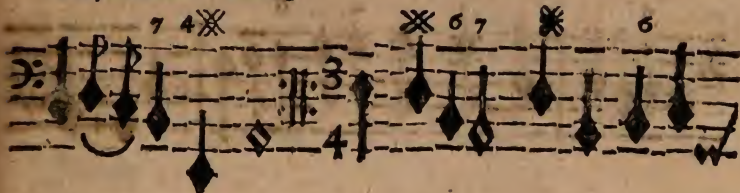 7 4 6 7 6
3
4